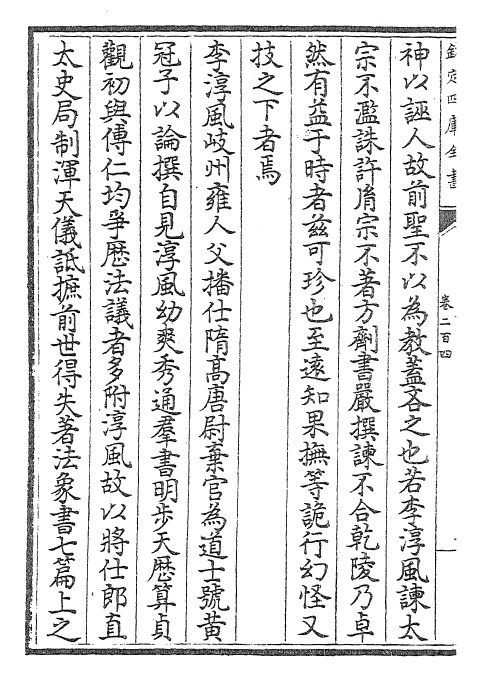 欽定四庫全書
卷二百四
神以誣人故前聖不以為教蓋吝之也若李淳風諫太
宗不濫誅許𦙍宗不著方劑書嚴撰諫不合乾陵乃卓
然有益于時者兹可珍也至遠知果撫等詭行幻怪又
技之下者焉
李淳風岐州雍人父播仕隋髙唐尉棄官為道士號黄
冠子以論撰自見淳風幼爽秀通羣書明步天厯算貞
觀初與傅仁均爭厯法議者多附淳風故以將仕郎直
太史局制渾天儀詆摭前世得失著法象書七篇上之